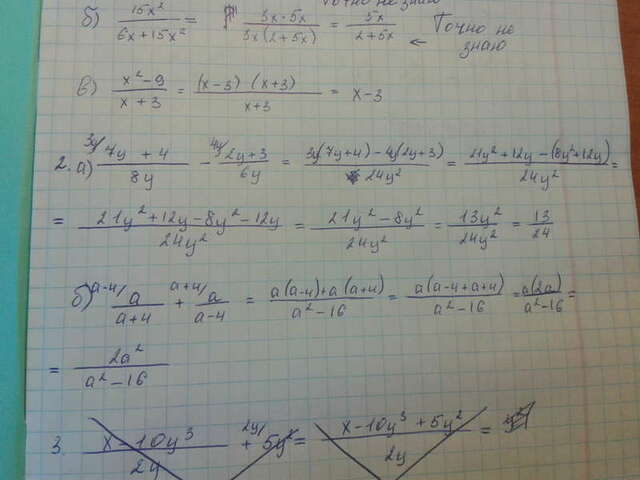 точно не знаю
б) 15x² / (6x+15x²) = 3x·5x / (3x(2+5x)) = 5x / (2+5x) ← Точно не
знаю
в) (x²-9) / (x+3) = (x-3)(x+3) / (x+3) = x-3
2. а) 3y/ (7y+4) / 8y - 4y/ (2y+3) / 6y = (3y(7y+4)-4y(2y+3)) / 24y² = (21y²+12y-(8y²+12y)) / 24y² =
= (21y²+12y-8y²-12y) / 24y² = (21y²-8y²) / 24y² = 13y² / 24y² = 13 / 24
б) a-4/ a / (a+4) + a+4/ a / (a-4) = (a(a-4)+a(a+4)) / (a²-16) = a(a-4+a+4) / (a²-16) = a(2a) / (a²-16) =
= 2a² / (a²-16)
3. (x-10y³) / 2y + 2y/ 5y² = (x-10y³+5y²) / 2y =